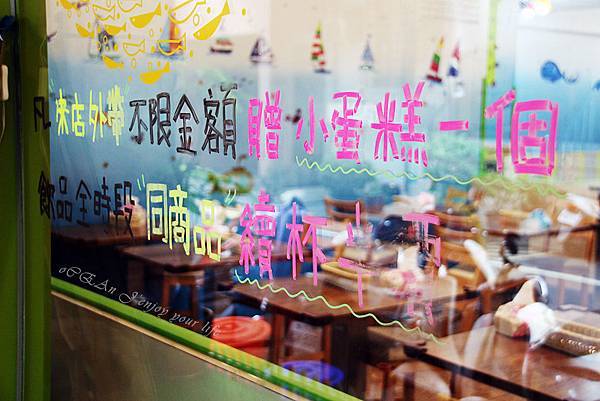 凡"來店外帶"不限金額贈小蛋糕一個
飲品全時段"同商品"續杯半價
oCEAn I'enjoy your life